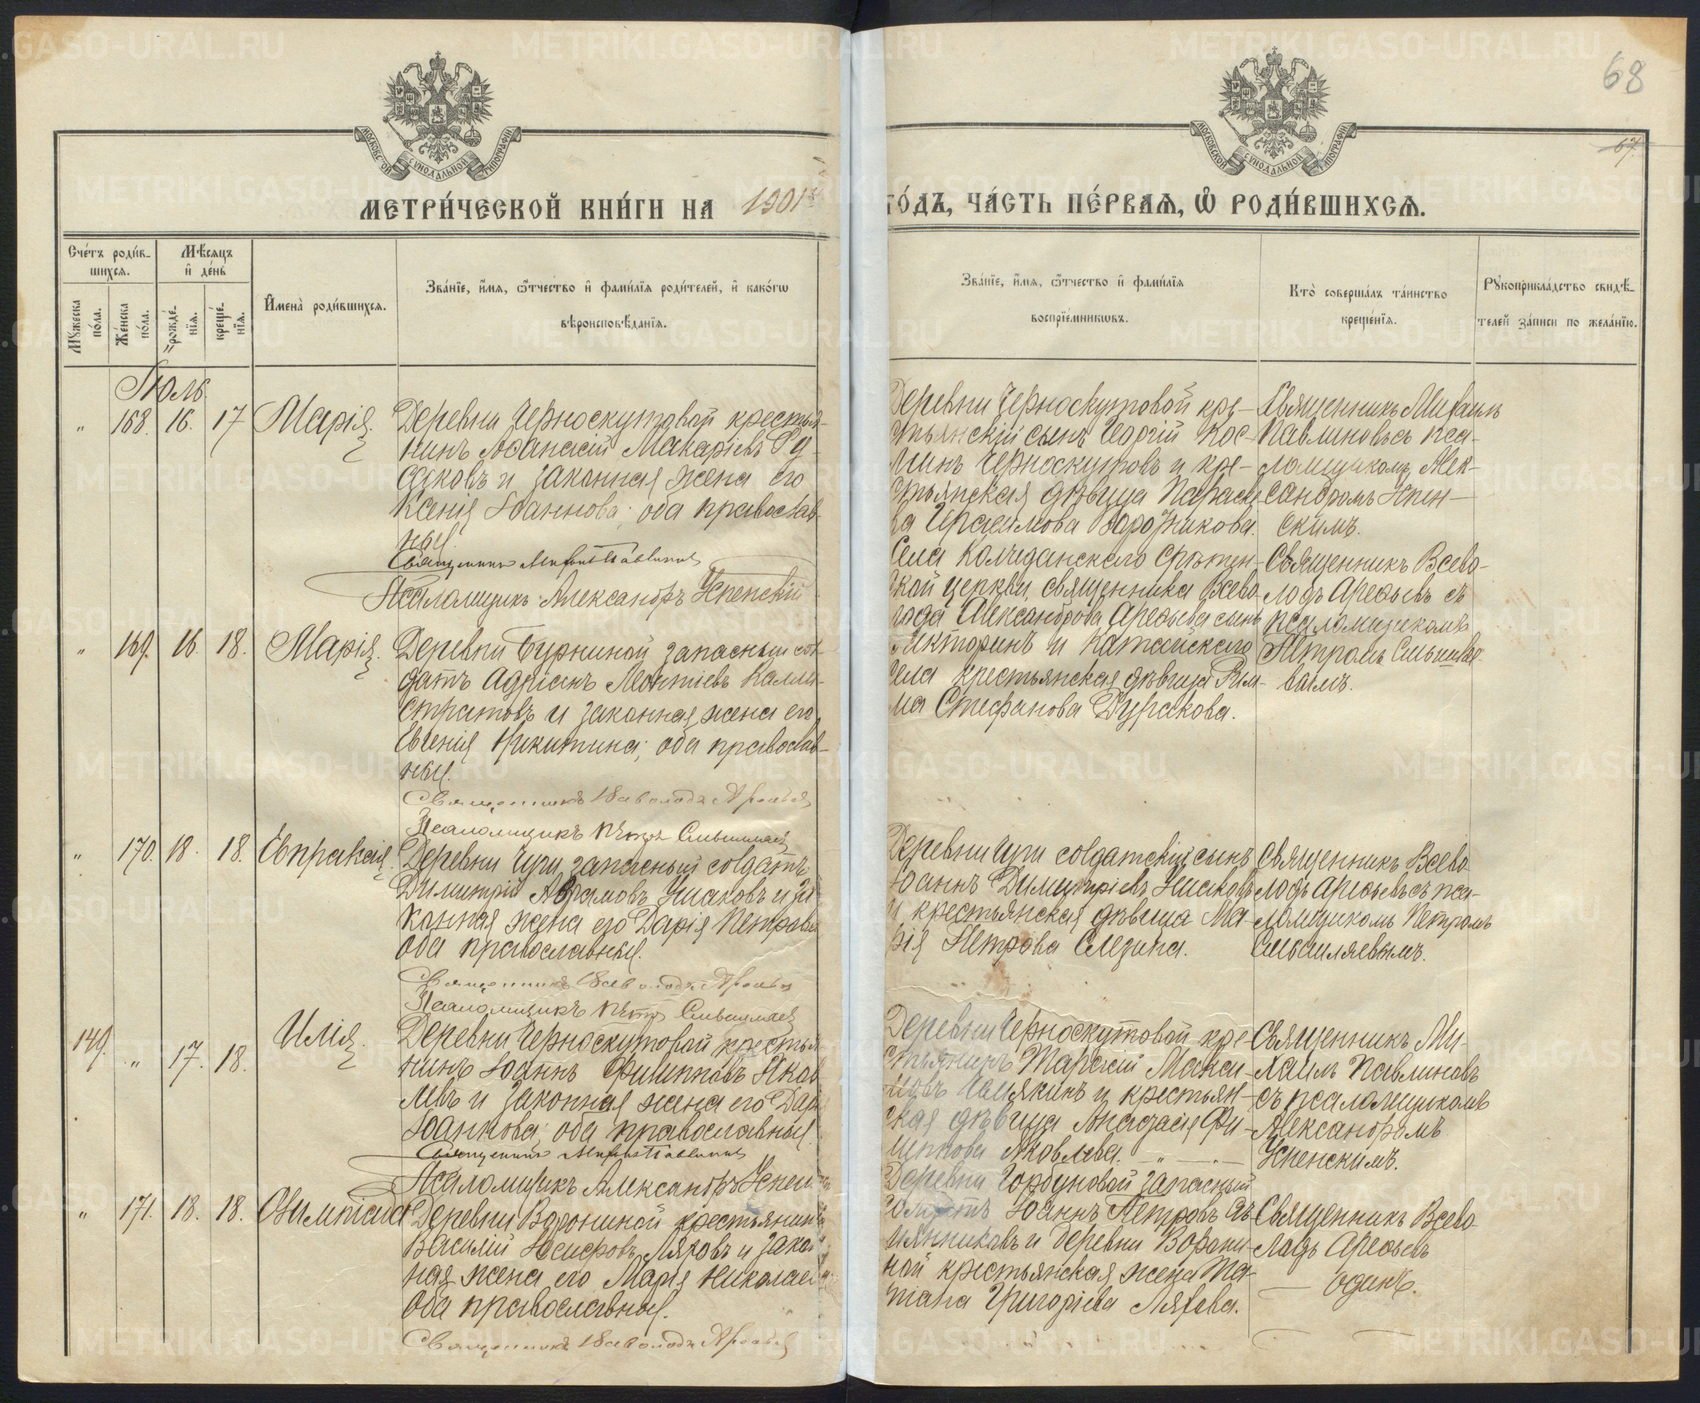 68
67.
МОСКОВСКОЙ СУНОДАЛЬНОЙ ТИПОГРАФІИ
МОСКОВСКОЙ СУНОДАЛЬНОЙ ТИПОГРАФІИ
МЕТРИ́ЧЕСКОЙ КНИ́ГИ НА 1901й
ГО́ДЪ, ЧА́СТЬ ПЕ́РВАЯ, Ѽ РОДИ́ВШИХСЯ.
Сче́тъ роди́в-
шихся.
Мѣ́сяцъ
и҆ де́нь
Му́жеска
по́ла.
Же́нска
по́ла.
рожде́-
нїя.
креще́-
нїя.
И҆мена̀ роди́вшихся.
Зва́нїе, и҆́мя, ѻ҆́тчество и҆ фами́лїя роди́телей, и҆ како́гѡ
вѣроисповѣ́данїя.
Зва́нїе, и҆́мя, ѻ҆́тчество и҆ фами́лїя
воспрїе́мникѡвъ.
Кто̀ соверша́лъ та́инство
креще́нїя.
Рꙋкоприкла́дство свидѣ́-
телей за́писи по жела́нїю.
Іюль.
" 168. 16. 17 Марія.
Деревни Черноскутовой крестья-
нинъ Аѳанасій Макаріевъ
и законная жена его
Ксенія Іоаннова; оба православ-
ны.
Священникъ Михаилъ Павлиновъ
Псаломщикъ Александръ Успенскій
Деревни Черноскутовой кре-
стьянскій сынъ Георгій Кос-
минъ Черноскутовъ и кре-
стьянская дѣвица Параске-
ва Герасимова
Священникъ Михаилъ
Павлиновъ съ пса-
ломщикомъ Алек-
сандромъ Успен-
скимъ.
" 169. 16. 18. Марія.
Деревни Бурниной запасный сол-
датъ Адріанъ Леонтіевъ Калли-
стратовъ и законная жена его
Евгенія Никитина; оба православ-
ны.
Священникъ Всеволодъ Арефьевъ
Псаломщикъ Петръ
Села Колчеданскаго Срѣтен-
ской церкви, священника Всево-
лода Александрова Арефьева сынъ
Викторинъ и Катайскаго
села крестьянская дѣвица Рим-
ма Стефанова Дуракова.
Священникъ Всево-
лодъ Арефьевъ съ
псаломщикомъ
Петромъ
" 170. 18. 18. Евпраксія.
Деревни Чуги, запасный солдатъ
Димитрій Ушаковъ и за-
конная жена его Дарія Петрова
оба православны.
Священникъ Всеволодъ Арефьевъ
Псаломщикъ Петръ
Деревни Чуги солдатскій сынъ
Іоаннъ Димитріевъ Ушаковъ
и крестьянская дѣвица Ма-
рія Петрова
Священникъ Всево-
лодъ Арефьевъ съ пса-
ломщикомъ Петромъ
149. " 17. 18. Илія.
Деревни Черноскутовой крестья-
нинъ Іоаннъ Филипповъ Яков-
левъ и законная жена его Дарія
Іоаннова; оба православны.
Священникъ Михаилъ Павлиновъ
Псаломщикъ Александръ Успенскій
Деревни Черноскутовой кре-
стьянинъ Тарасій Макси-
мовъ и крестьян-
ская дѣвица Анастасія Фи-
липпова Яковлева.
Священникъ Ми-
хаилъ Павлиновъ
съ псаломщикомъ
Александромъ
Успенскимъ.
" 171. 18. 18. Олимпіада
Деревни Ворониной крестьянинъ
Василій Іосифовъ Ляховъ и закон-
ная жена его Марія Николаева
оба православны.
Священникъ Всеволодъ Арефьевъ
Деревни Горбуновой запасный
солдатъ Іоаннъ Петровъ
и деревни Ворони-
ной крестьянская жена Та-
тіана Григоріева Ляхова.
Священникъ Всево-
лодъ Арефьевъ
одинъ.